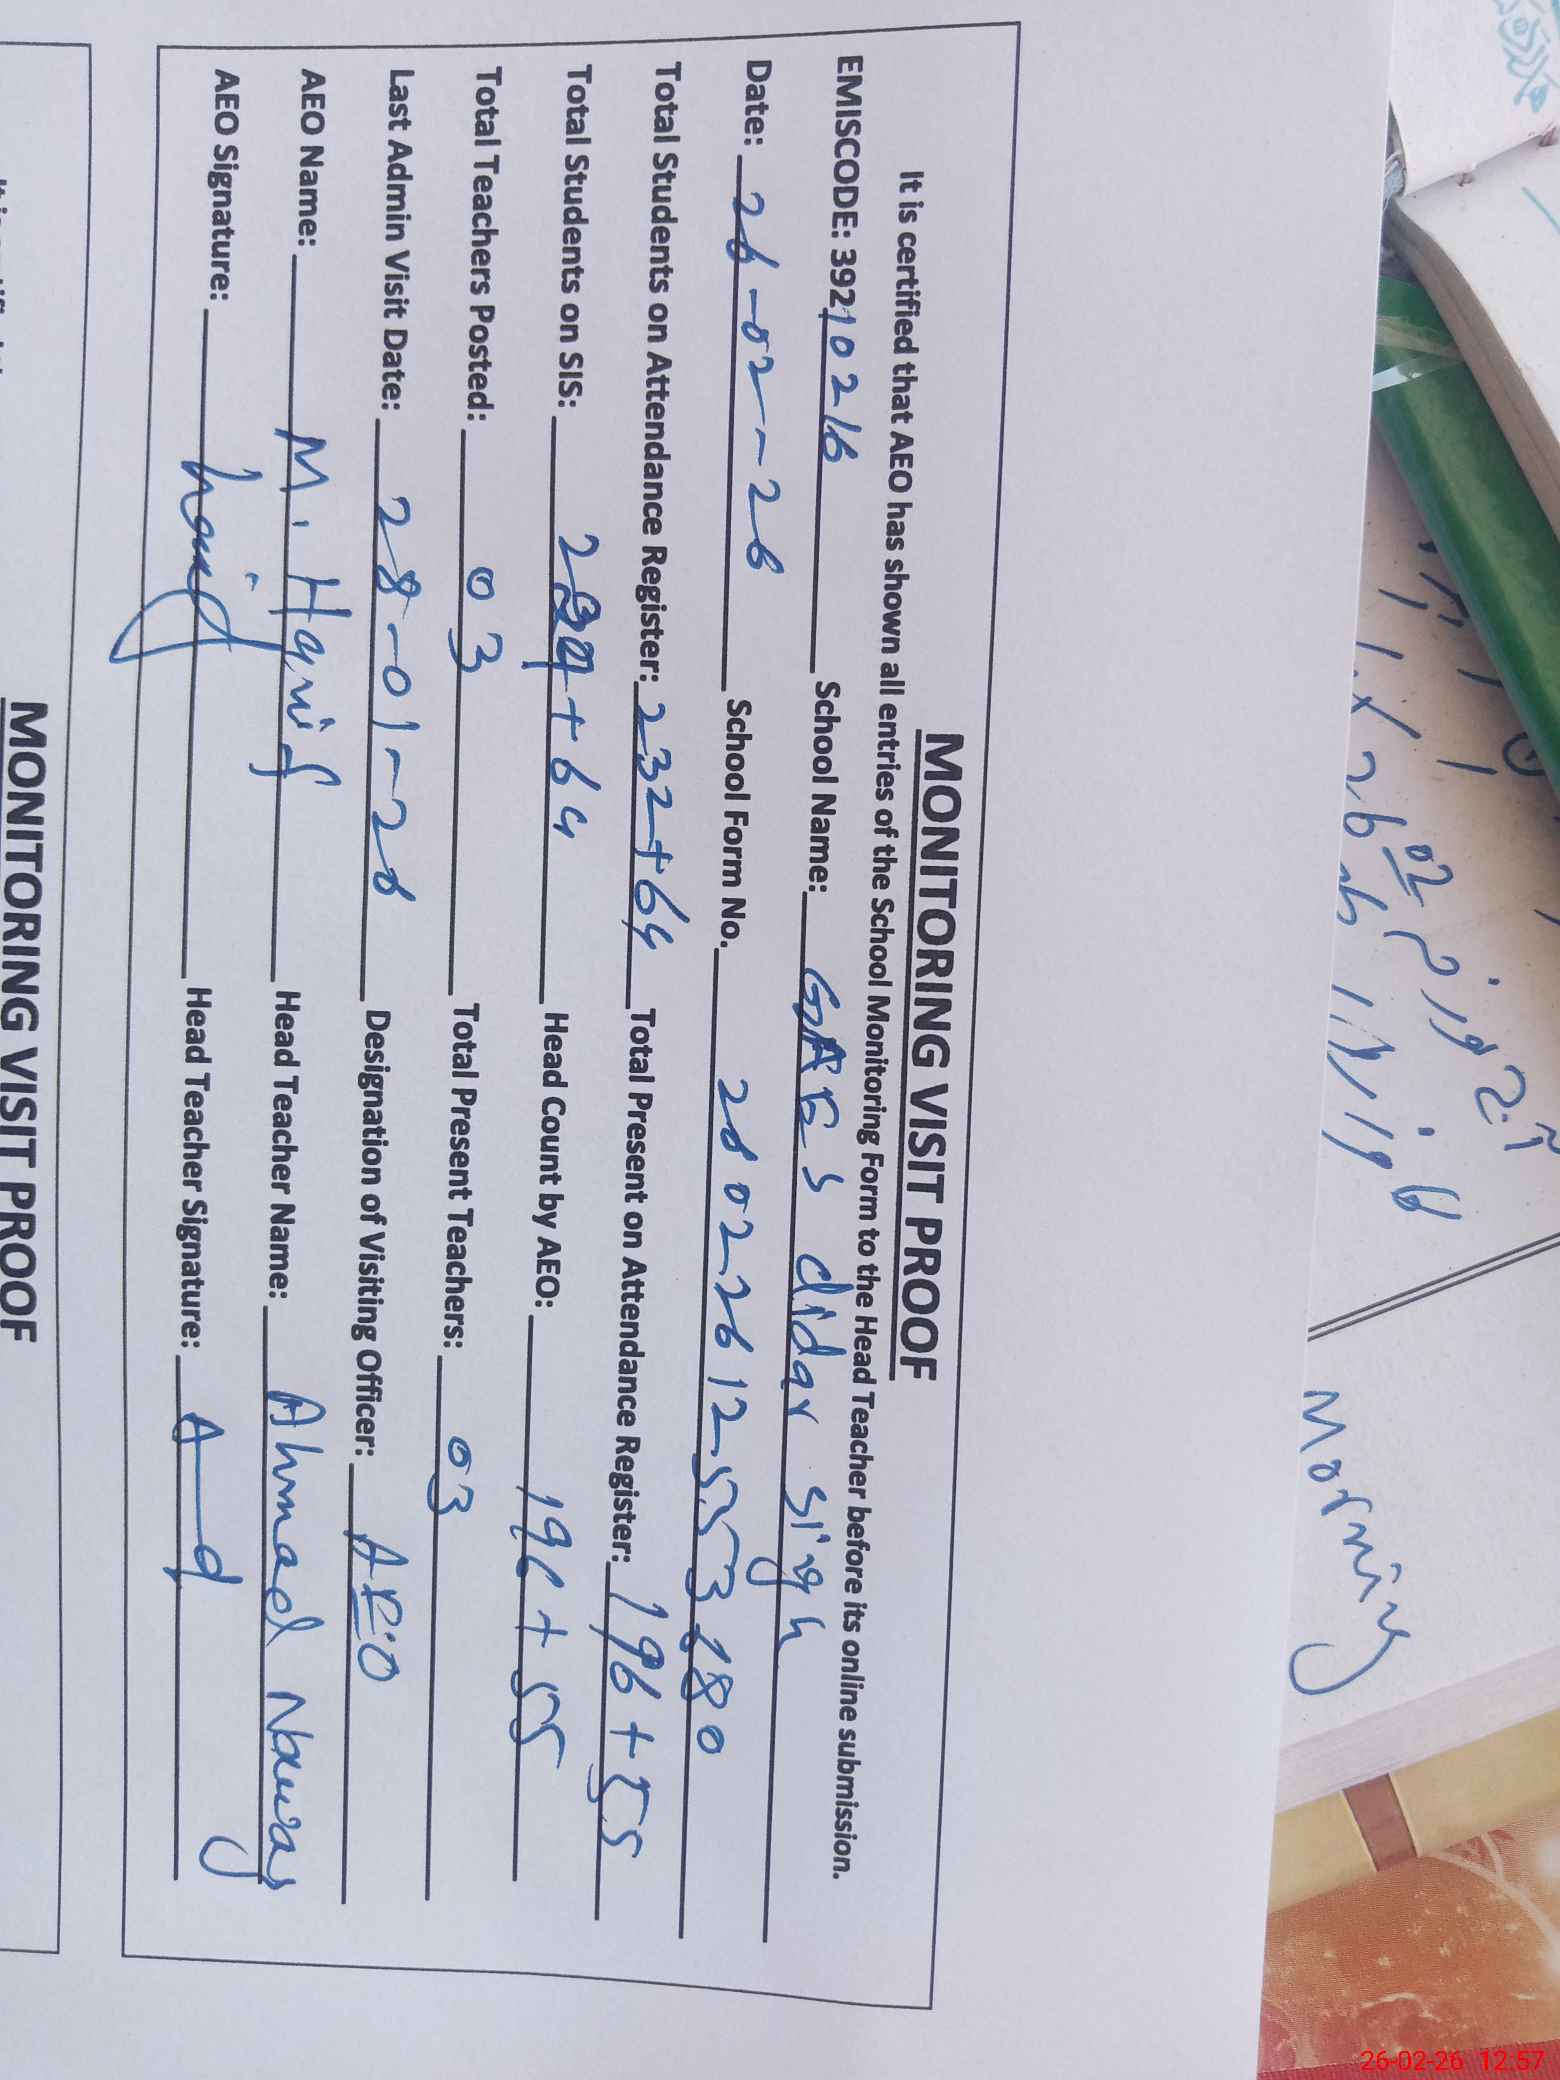 MONITORING VISIT PROOF
It is certified that AEO has shown all entries of the School Monitoring Form to the Head Teacher before its online submission.
EMISCODE: 39210216 School Name: GAES didar sigh
Date: 26-02-26 School Form No. 26022612553180
Total Students on Attendance Register: 232+64 Total Present on Attendance Register: 196+55
Total Students on SIS: +64 Head Count by AEO: 196+55
Total Teachers Posted: 03 Total Present Teachers: 03
Last Admin Visit Date: 28-01-26 Designation of Visiting Officer: AEO
AEO Name: M. Hanif Head Teacher Name: Ahmad Nawaz
AEO Signature: Head Teacher Signature:
MONITORING VISIT PROOF
Morning
26-02-26 12:57